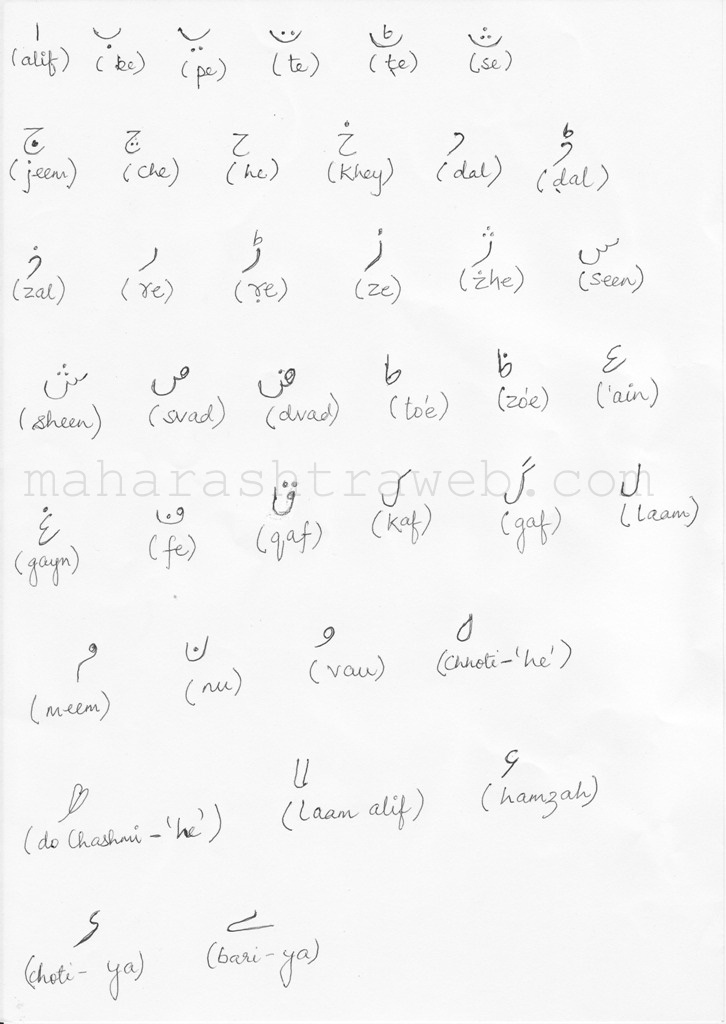 ا ب پ ت ٹ ث
(alif) (be) (pe) (te) (ṭe) (se)
ج چ ح خ د ڈ
(jeem) (che) (he) (khey) (dal) (ḍal)
ذ ر ڑ ز ژ س
(zal) (re) (ṛe) (ze) (zhe) (seen)
ش ص ض ط ظ ع
(sheen) (svad) (dvad) (to'e) (zo'e) ('ain)
maharashtraweb.com
غ ف ق ک گ ل
(gayn) (fe) (qaf) (kaf) (gaf) (laam)
م ن و ہ
(meem) (nu) (vau) (chhoti-'he')
ھ لا ء
(do Chashmi-'he') (Laam alif) (hamzah)
ی ے
(choti- ya) (bari-ya)